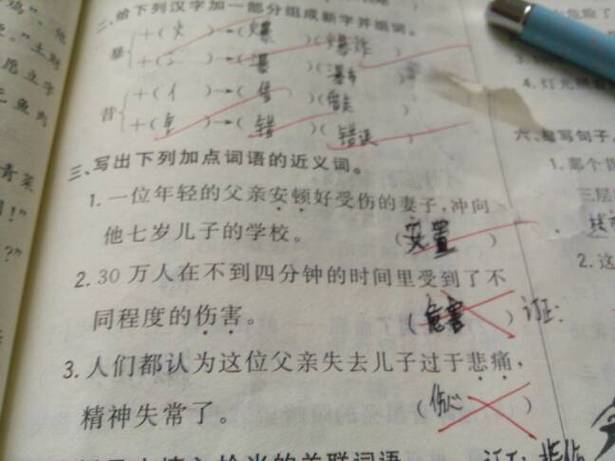 二、给下列汉字加一部分组成新字并组词。
暴 +(火)→(爆)(爆炸)
+(氵)→(瀑)(瀑布)
昔 +(亻)→(借)(借走)
+(钅)→(错)(错误)
三、写出下列加点词语的近义词。
1. 一位年轻的父亲安顿好受伤的妻子,冲向
他七岁儿子的学校。 (安置)
2. 30万人在不到四分钟的时间里受到了不
同程度的伤害。 (危害) 订正:
3. 人们都认为这位父亲失去儿子过于悲痛,
精神失常了。 (伤心)
订正: 悲伤
4. 灯光
六、
写句子。
1. 那个
三层
2. 这